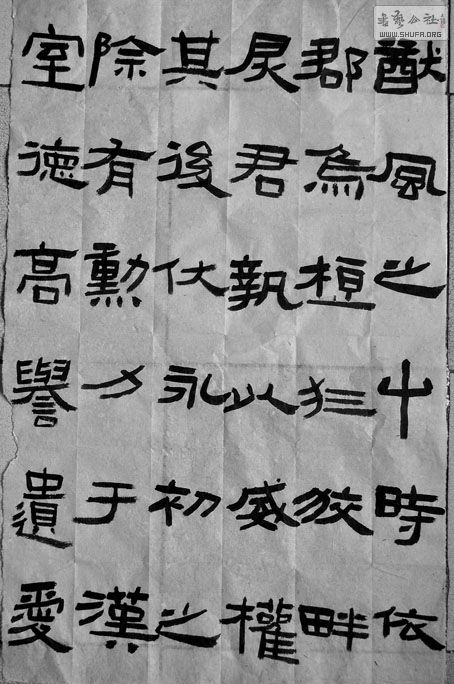 猷風之屮時依
郡烏桓狂狡畔
戾君執以威權
其後仗永初之
除有勳力于漢
室德高譽遺愛
書藝公社
WWW.SHUFA.ORG